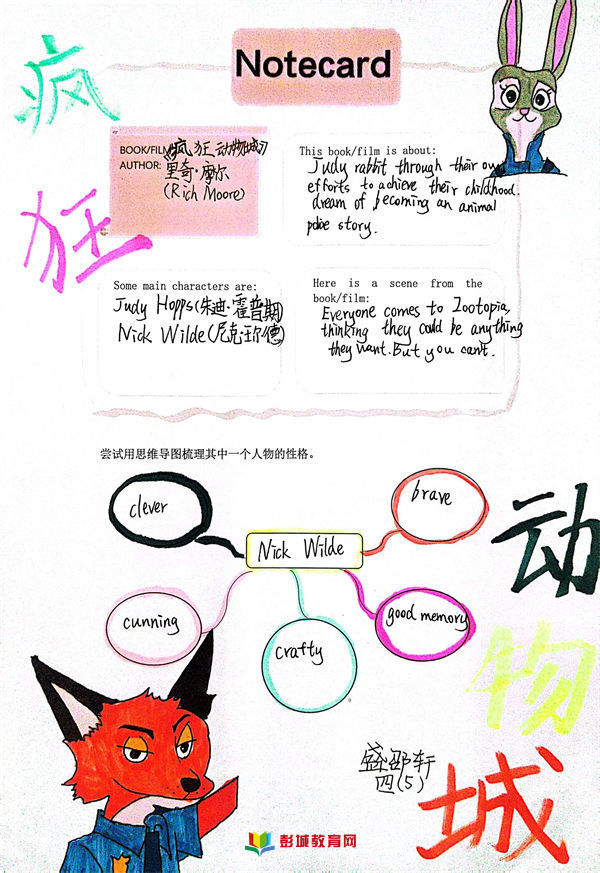 疯
狂
Notecard
BOOK/FILM: 《疯狂动物城》
AUTHOR: 里奇·摩尔
(Rich Moore)
This book/film is about:
Judy rabbit through their own
efforts to achieve their childhood.
dream of becoming an animal
police story.
Some main characters are:
Judy Hopps(朱迪·霍普斯)
Nick Wilde(尼克·王尔德)
Here is a scene from the
book/film:
Everyone comes to Zootopia,
thinking they could be anything
they want. But you cant.
尝试用思维导图梳理其中一个人物的性格。
clever
brave
Nick Wilde
cunning
crafty
good memory
动
物
城
轩
四(5)
彭城教育网